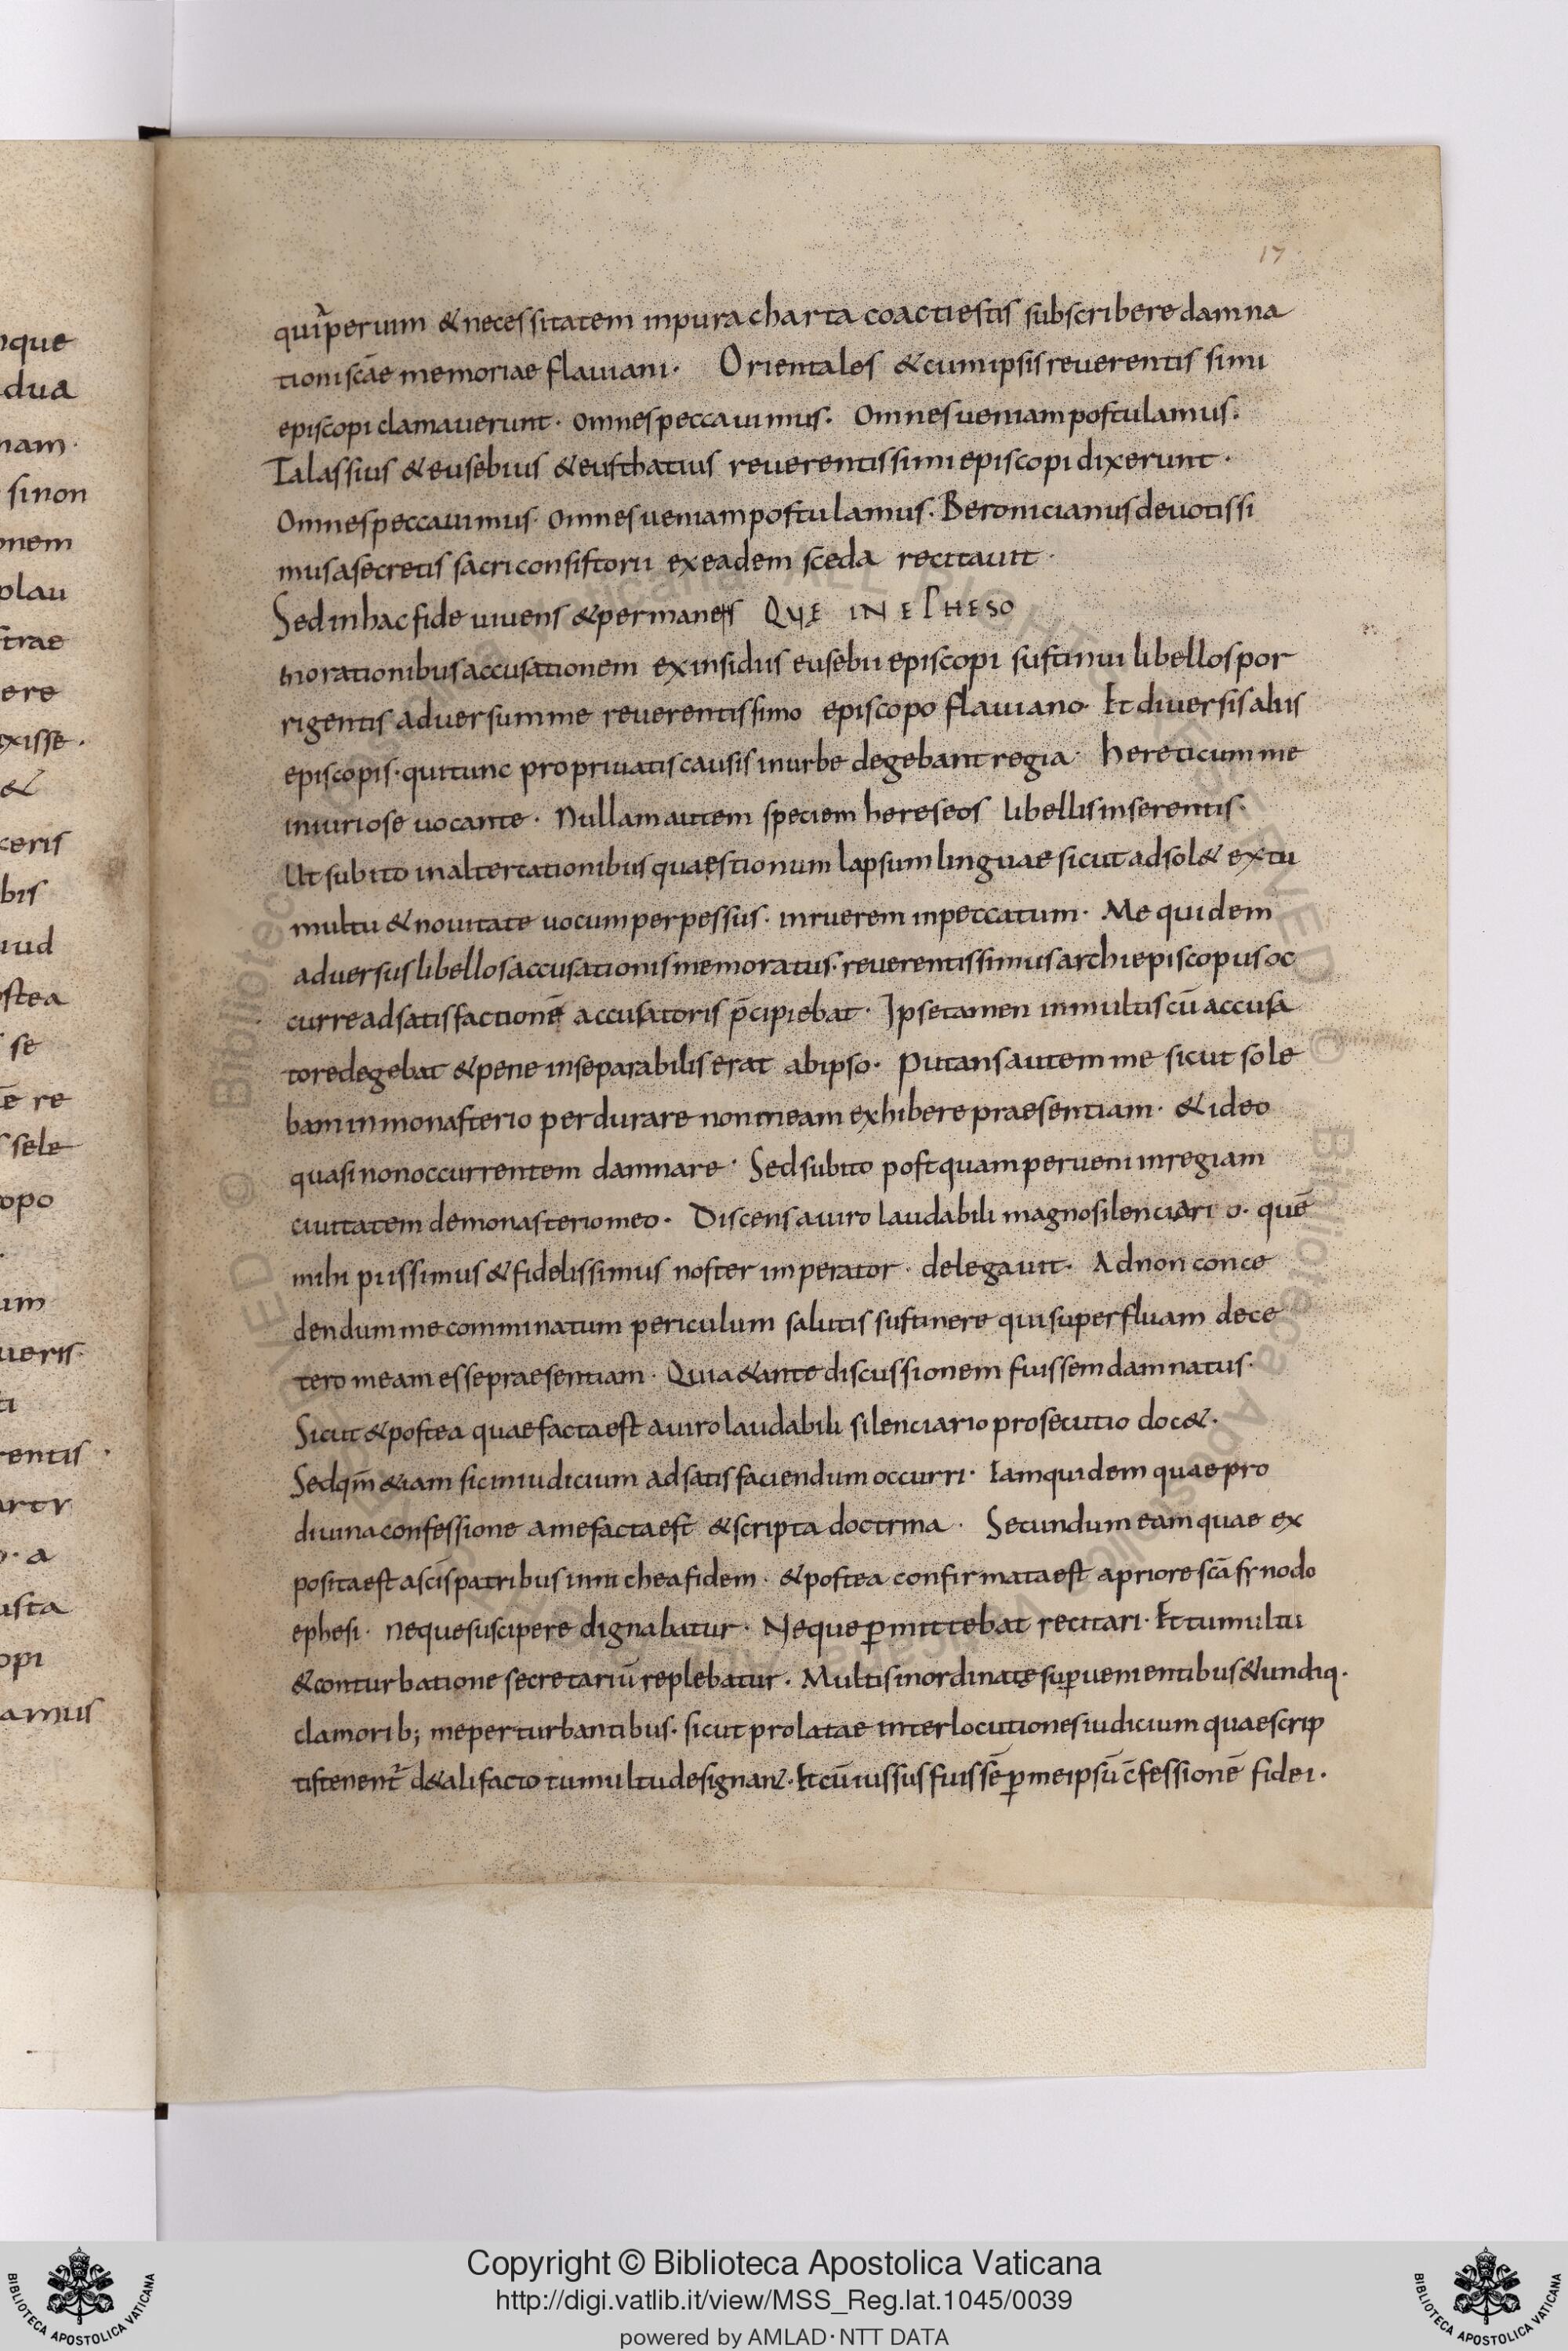 que
dua
nam·
sinon
onem
plau
strae
ere
xisse·
&
ceris
bis
uud
ostea
se
ē re
sele
opo
um
ueris·
ti
rentis·
artyr
o· a
usta
opi
amus
17
quip̄eruim & necessitatem inpura charta coacti estis subscribere damna
tioni scāe memoriae flauiani· Orientales & cum ipsis reuerentis simi
episcopi clamauerunt· omnes peccauimus· Omnes ueniam postulamus·
Talassius & eusebius & eusthatius reuerentissimi episcopi dixerunt·
Omnes peccauimus· omnes ueniam postulamus· Beronicianus deuotissi
mus asecretis sacri consistorii ex eadem sceda recitauit·
Sed in hac fide uiuens & permanens QUE IN EPHESO
morationibus accusationem ex insidiis eusebii episcopi sustinui libellos por
rigentis aduersum me reuerentissimo episcopo flauiano· Et diuersis aliis
episcopis· qui tunc pro priuatis causis in urbe degebant regia· hereticum me
iniuriose uocante· Nullam autem speciem hereseos libellis inserentis·
Ut subito in altercationibus quaestionum lapsum linguae sicut adsol& ex tu
multu & nouitate uocum perpessus· inruerem inpeccatum· Me quidem
aduersus libellos accusationis memoratus· reuerentissimus archiepiscopus oc
curre ad satisfactionē accusatoris p̄cipiebat· Ipse tamen in multis cū accusa
tore degebat & pene inseparabilis erat ab ipso· Putans autem me sicut sole
bam in monasterio perdurare non meam exhibere praesentiam· & ideo
quasi non occurrentem damnare· Sed subito postquam perueni in regiam
ciuitatem de monasterio meo· Discens a uiro laudabili magno silenciario· quē
mihi piissimus & fidelissimus noster imperator· delegauit· Ad non conce
dendum me comminatum periculum salutis sustinere qui superfluam dece
tero meam esse praesentiam· Quia & ante discussionem fuissem damnatus·
Sicut & postea quae facta est a uiro laudabili silenciario prosecutio doc&·
Sed qm̄ &iam sic in iudicium ad satisfaciendum occurri· Iam quidem quae pro
diuina confessione a me facta est & scripta doctrina· Secundum eam quae ex
posita est a scīs patribus in nichea fidem· & postea confirmata est a priore scā synodo
ephesi· neque suscipere dignabatur· Neque pmittebat recitari· Et tumultu
& conturbatione secretariū replebatur· Multis inordinate supuenientibus & undiq·
clamorib; me perturbantibus· sicut prolatae interlocutiones iudicium quae scrip
tis tenent̄ d& ali facto tumultu designant· Et cū iussus fuissē p meipsū c̄fessionē fidei·
Copyright © Biblioteca Apostolica Vaticana
http://digi.vatlib.it/view/MSS_Reg.lat.1045/0039
powered by AMLAD·NTT DATA
BIBLIOTECA APOSTOLICA VATICANA
BIBLIOTECA APOSTOLICA VATICANA